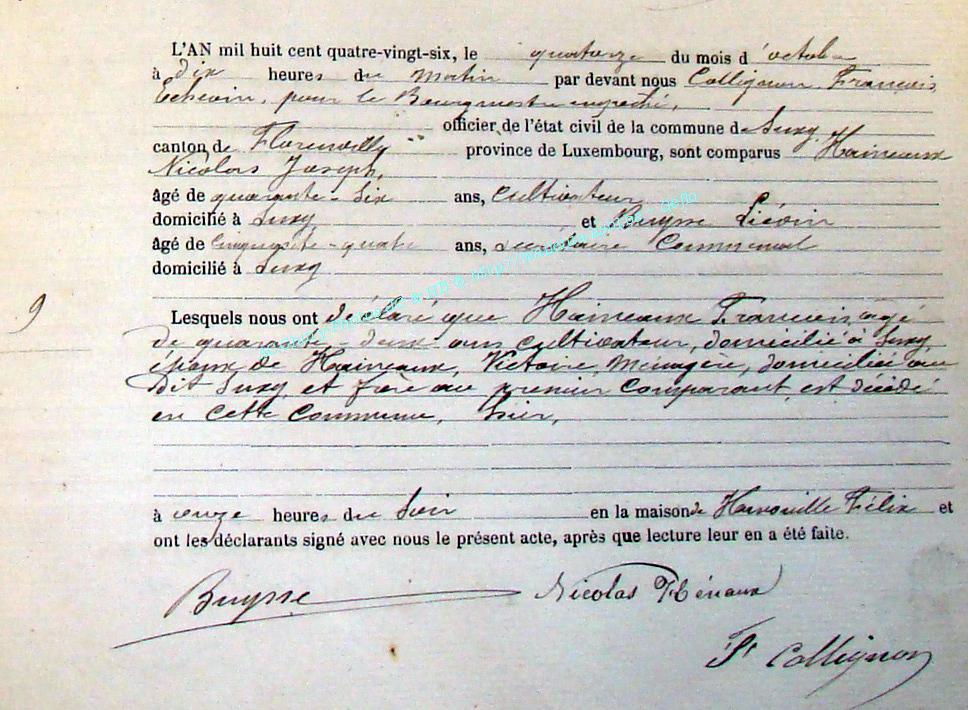 L'AN mil huit cent quatre-vingt-six, le quatorze du mois d'octobre
à dix heures du matin par devant nous Collignon, François,
Echevin, pour le Bourgmestre empêché,
officier de l'état civil de la commune de Suxy,
canton de Florenville province de Luxembourg, sont comparus Haineaux
Nicolas Joseph,
âgé de quarante-six ans, cultivateur
domicilié à Suxy et Buysse Liévin
âgé de cinquante-quatre ans, secrétaire Communal
domicilié à Suxy
9
Lesquels nous ont déclaré que Haineaux François, âgé
de quarante-deux ans cultivateur, domicilié à Suxy
époux de Haineaux, Victoire, Ménagère, domiciliée au
dit Suxy, et frère au premier comparant, est décédé
en cette commune, hier,
à onze heures du soir en la maison de Félix et
ont les déclarants signé avec nous le présent acte, après que lecture leur en a été faite.
Buysse Nicolas Hénaux
Fs Collignon